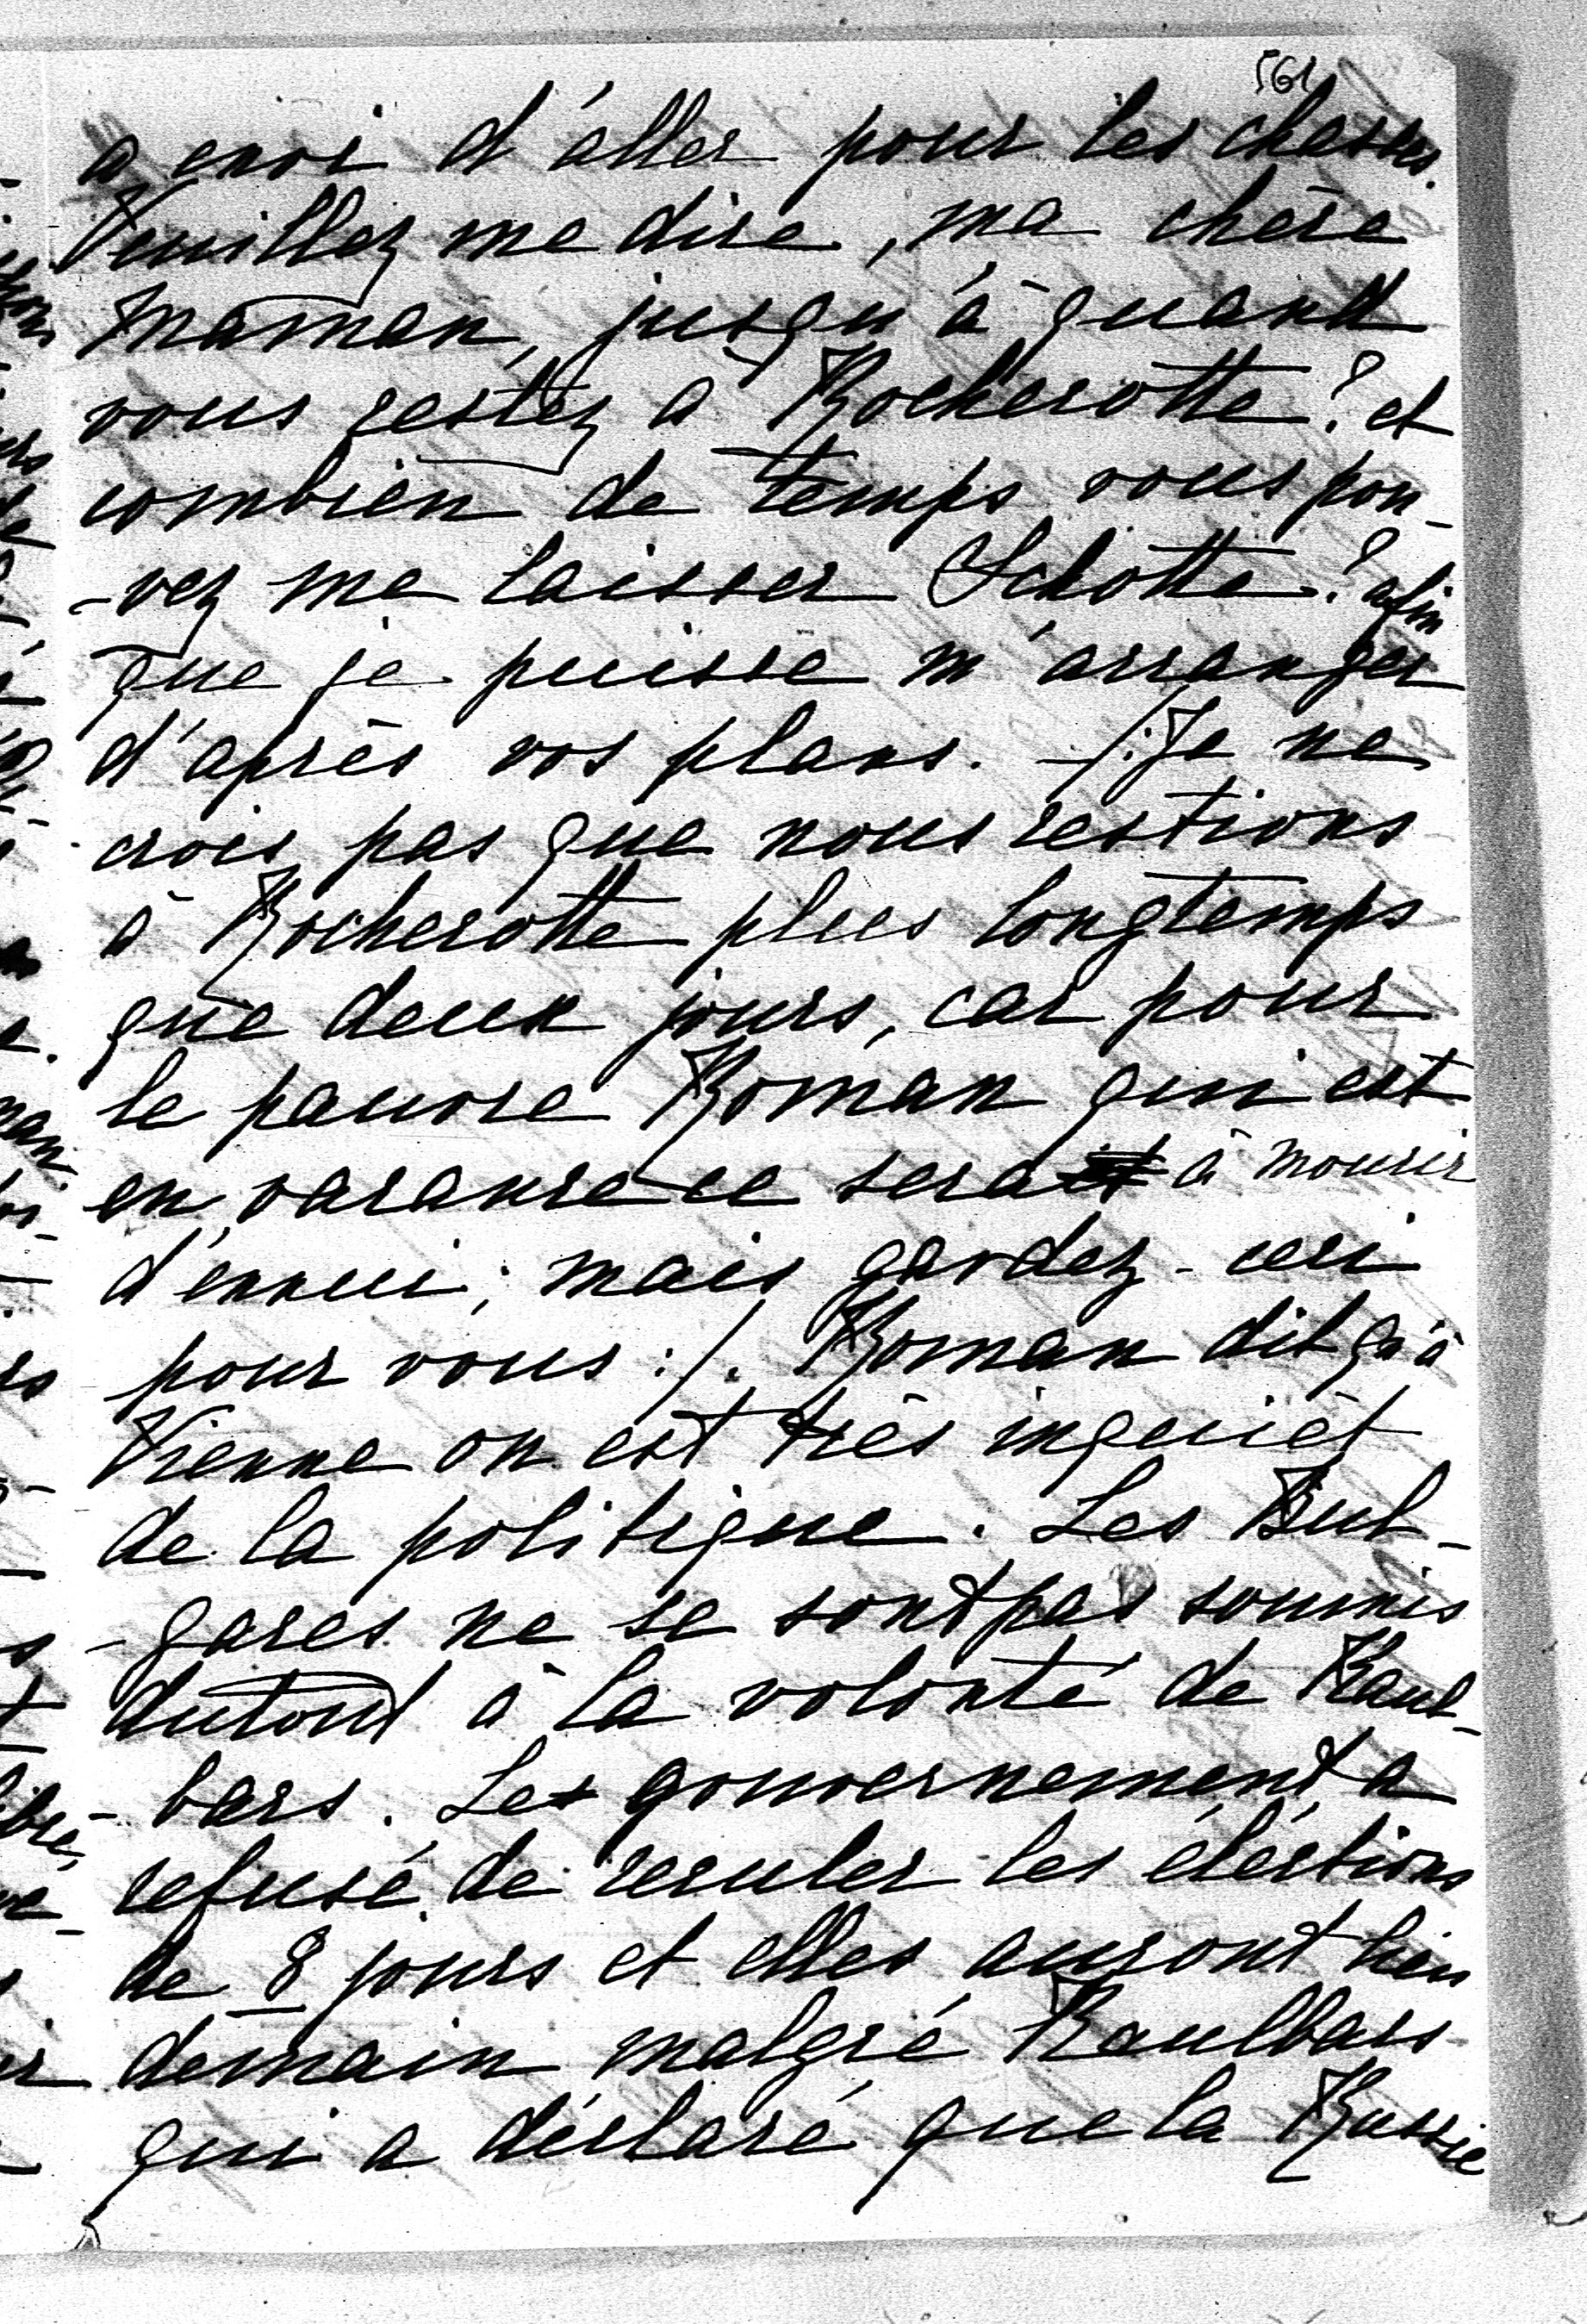 561
a envie d'aller pour les chasses.
Veuillez me dire, ma chère
Maman, jusqu'à quand
vous restez à Rocherotte? et
combien de temps vous pou-
-vez me laisser Schotte? afin
que je puisse m'arranger
d'après vos plans. /: Je ne
crois pas que nous restions
à Rocherotte plus longtemps
que deux jours, car pour
le pauvre Roman qui est
en vacance ce sera à mourir
d'ennui; mais gardez-ceci
pour vous :/. Roman dit qu'à
Vienne on est très inquièt
de la politique. Les Bul-
-gares ne se sont pas soumis
dutout à la volonté de Kaul-
-bars. Le gouvernement a
refusé de reculer les éléctions
de 8 jours et elles auront lieu
demain malgré Kaulbars
qui a déclaré que la Russie